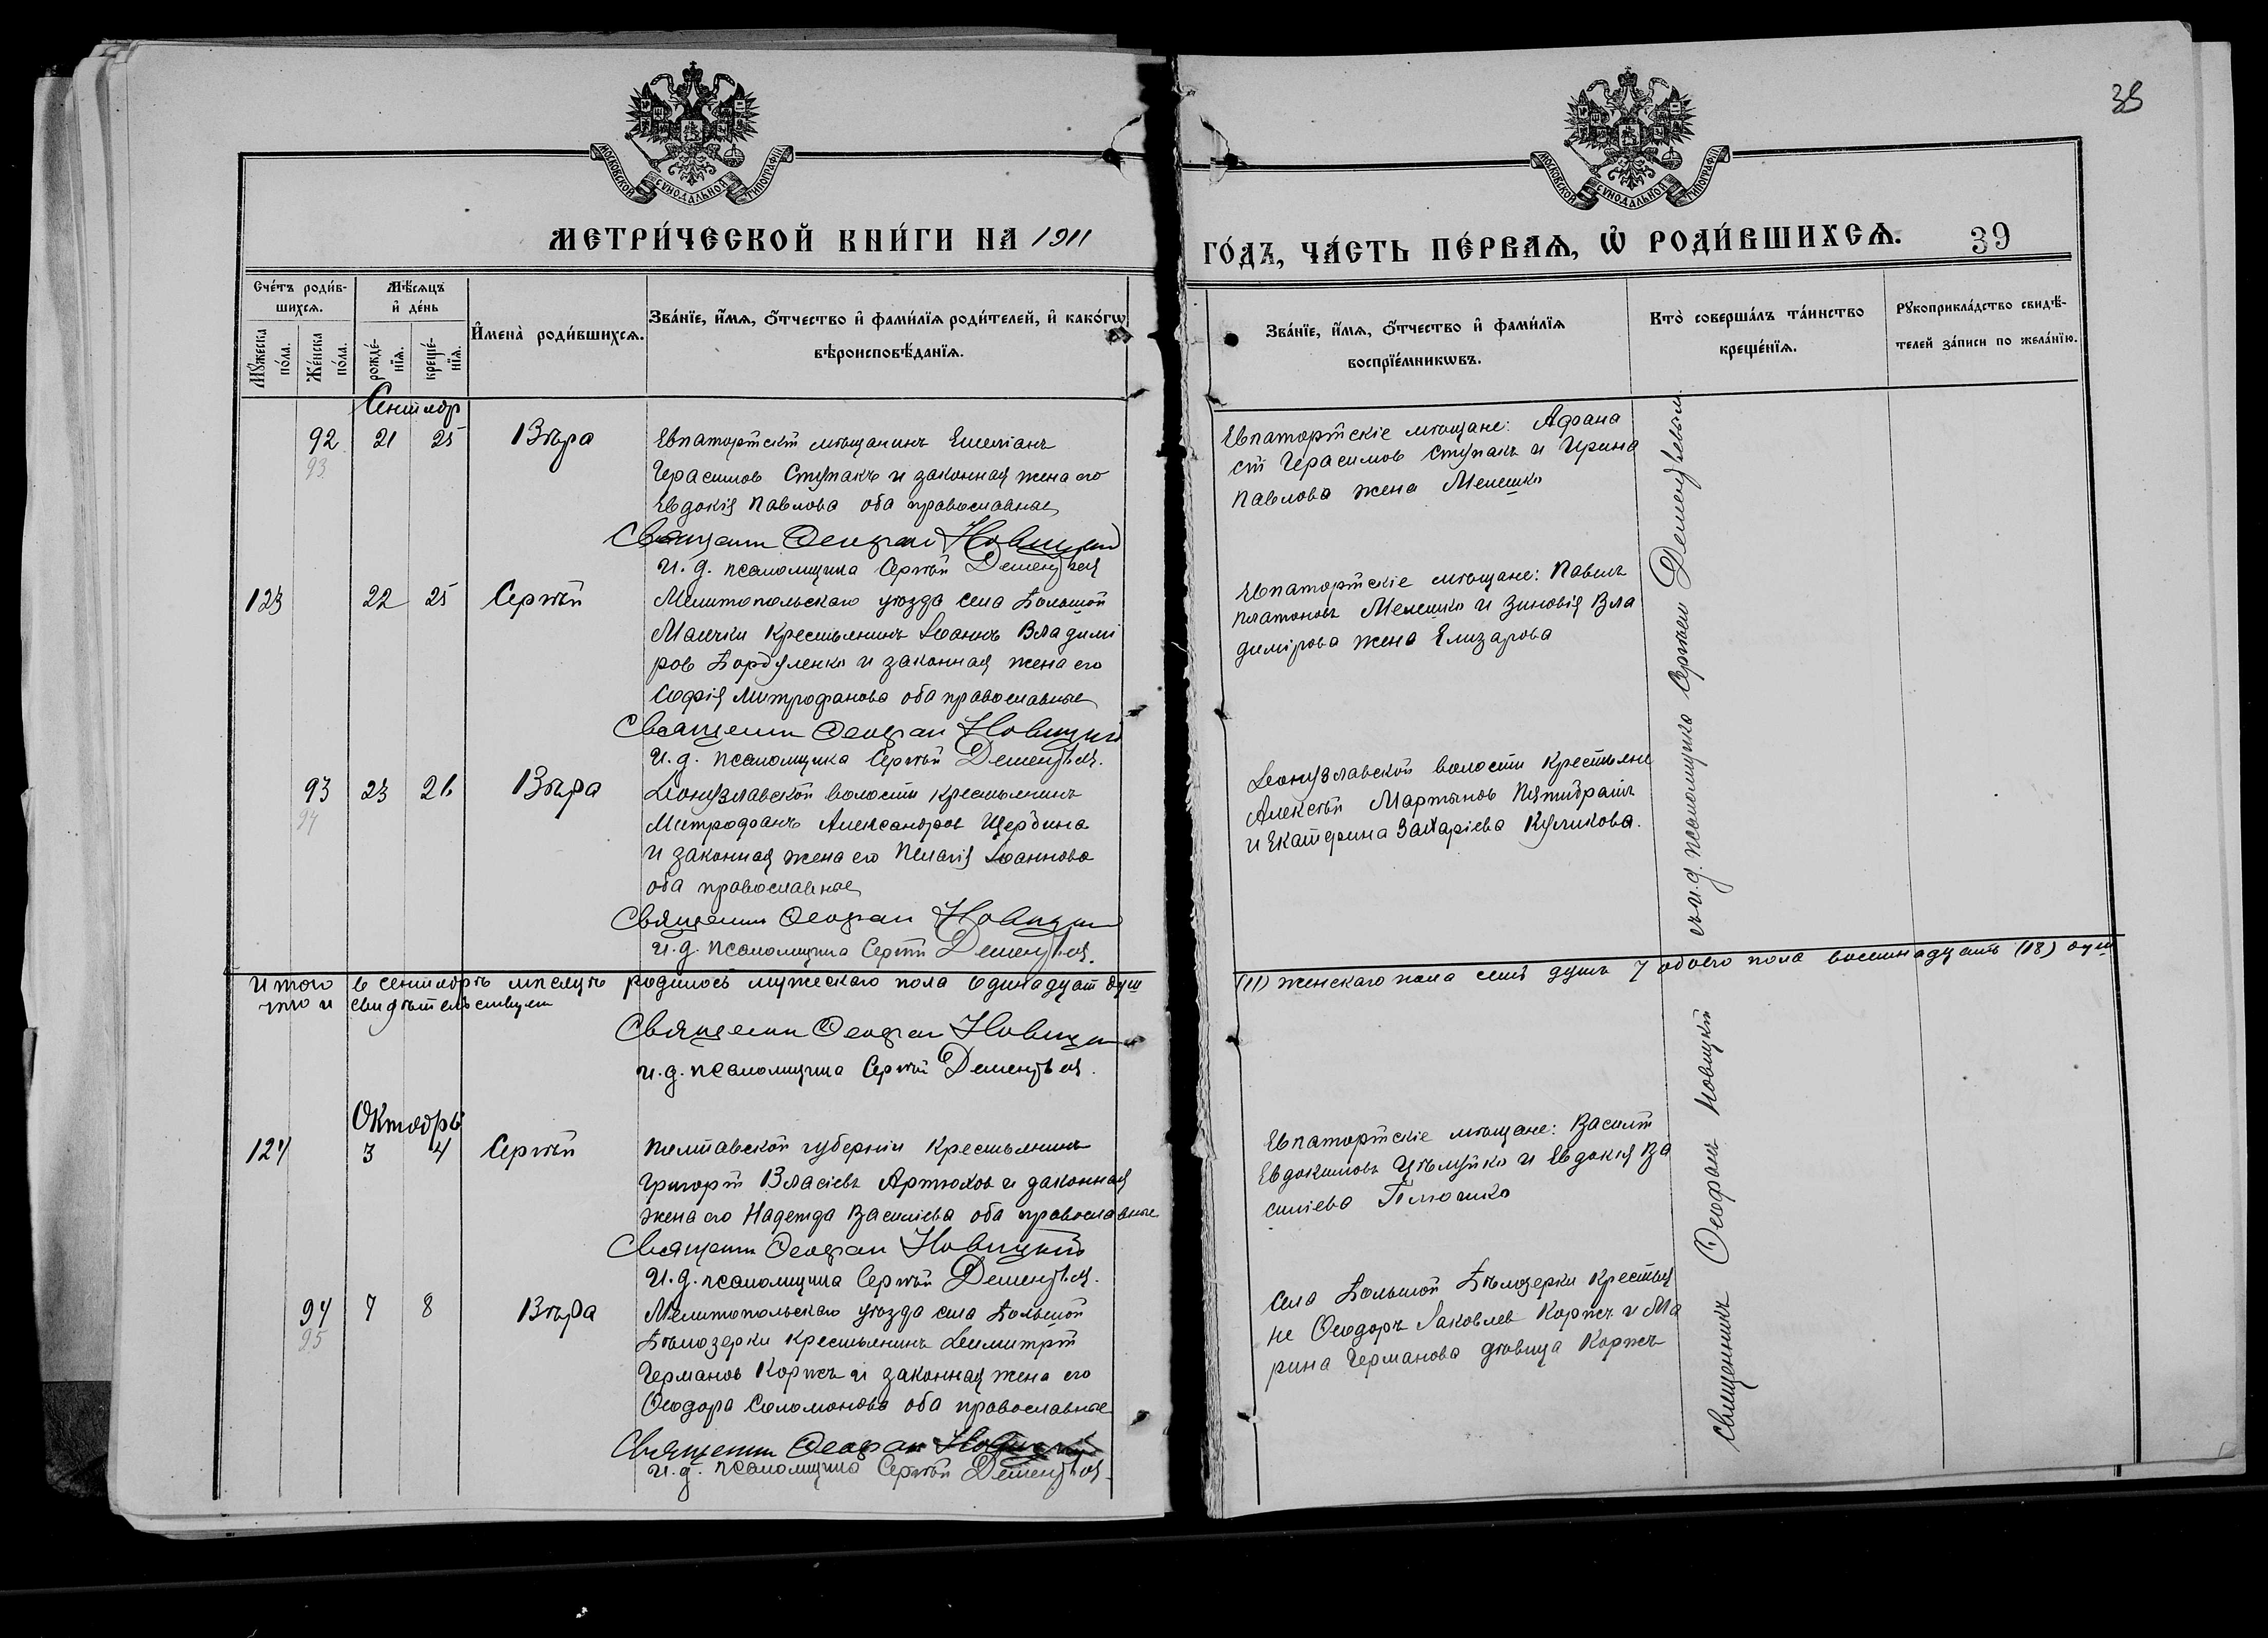 38
МОСКОВСКОЙ СѴНОДАЛЬНОЙ ТИПОГРАФІИ
МОСКОВСКОЙ СѴНОДАЛЬНОЙ ТИПОГРАФІИ
МЕТРИ́ЧЕСКОЙ КНИ́ГИ НА 1911
ГО́ДЪ, ЧА́СТЬ ПЕ́РВАѦ, Ѡ҆ РОДИ́ВШИХСѦ. 39
Сче́тъ роди́в-
шихсѧ.
Мꙋ́жеска
по́ла.
Же́нска
по́ла.
Мѣ́сѧцъ
и҆ де́нь
рожде́-
нїѧ.
креще́-
нїѧ.
И҆мена̀ роди́вшихсѧ.
Зва́нїе, и҆́мѧ, ѻ҆́тчество и҆ фами́лїѧ роди́телей, и҆ како́гѡ
вѣроисповѣ́данїѧ.
Зва́нїе, и҆́мѧ, ѻ҆́тчество и҆ фами́лїѧ
воспрїе́мникѡвъ.
Кто̀ соверша́лъ та́инство
креще́нїѧ.
Рꙋкоприкла́дство свидѣ́-
телей за́писи по жела́нїю.
Сентябр
92 21 25 Вѣра
93
Евпаторійскій мѣщанинъ Емеліанъ
Герасимов Ступакъ и законная жена его
Евдокія Павлова оба православные
Священник Ѳеофан Новицкий
И. д. псаломщика Сергѣй Дементьев
Евпаторійскіе мѣщане: Афана
сій Герасимов Ступакъ и Ирина
Павлова жена Мелешко
123 22 25 Сергѣй
Мелитопольскаго уѣзда села Большой
Маячки Крестьянинъ Іоаннъ Владимі
ров Бордуленко и законная жена его
Софія Митрофанова оба православные
Священник Ѳеофан Новицкий
И. д. псаломщика Сергѣй Дементьев.
Евпаторійскіе мѣщане: Павелъ
Платоновъ Мелешко и Зиновія Вла
димірова жена Елизарова
93 23 26 Вѣра
94
Донузлавской волости крестьянинъ
Митрофанъ Александров Щербина
и законная жена его Пелагія Іоаннова
оба православные
Священник Ѳеофан Новицкий
и. д. псаломщика Сергѣй Дементьев.
Донузлавской волости Крестьяне
Алексѣй Мартынов Пятибратъ
и Екатерина Захаріева Куликова.
Итого в сентябрѣ мѣсяцѣ родилось мужескаго пола одинадцат душ
(11) женскаго пола семь душъ 7 обоего пола восемнадцать (18) душ
что и свидѣтельствуем
Священник Ѳеофан Новицкий
и. д. псаломщика Сергѣй Дементьев.
Октябрь
124 3 4 Сергѣй
Полтавской губерніи Крестьянинъ
Григорій Власіевъ Артюхов и законная
жена его Надежда Василіева оба православные
Священник Ѳеофан Новицкий
И. д. псаломщика Сергѣй Дементьев.
Евпаторійскіе мѣщане: Василій
Евдокимовъ и Евдокія Ва
силіева
94 7 8 Вѣра
95
Мелитопольскаго уѣзда села Большой
Бѣлозерки крестьянинъ Димитрій
Германов Коржъ и законная жена его
Ѳеодора Соломонова оба православные
Священник Ѳеофан Новицкий
и. д. псаломщика Сергѣй Дементьев.
Села Большой Бѣлозерки Крестья
не Ѳеодоръ Іаковлев Коржъ и Ма
рина Германова дѣвица Коржъ
Священникъ Ѳеофанъ Новицкій
съ и. д. псаломщика Сергѣем Дементьевым